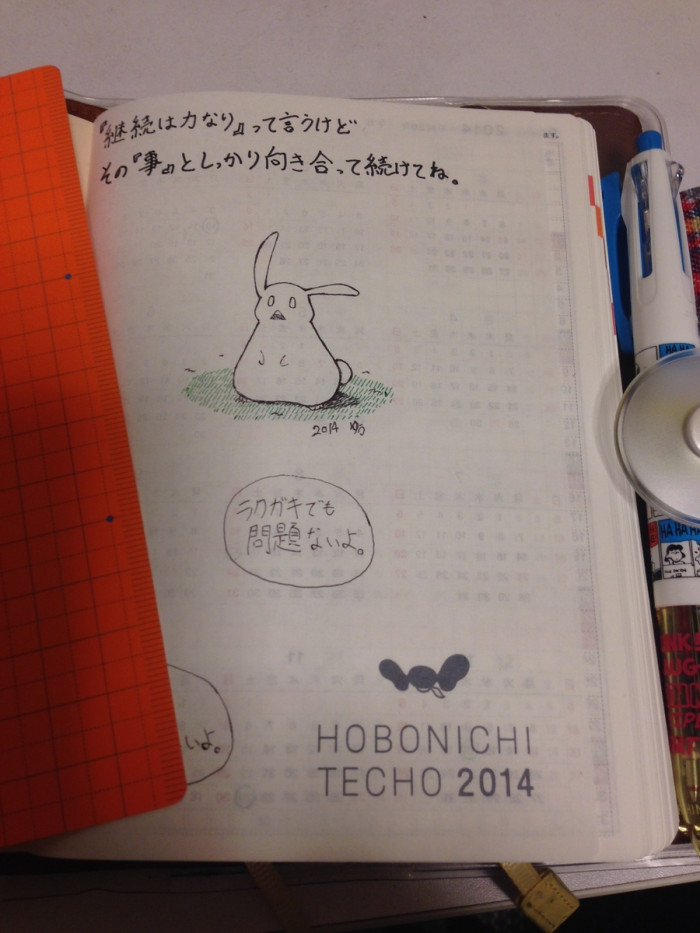 『継続は力なり』って言うけど
その『事』としっかり向き合って続けてね。
2014
ラクガキでも
問題ないよ。
いよ。
HOBONICHI
TECHO 2014
HA HA
HA HA HA